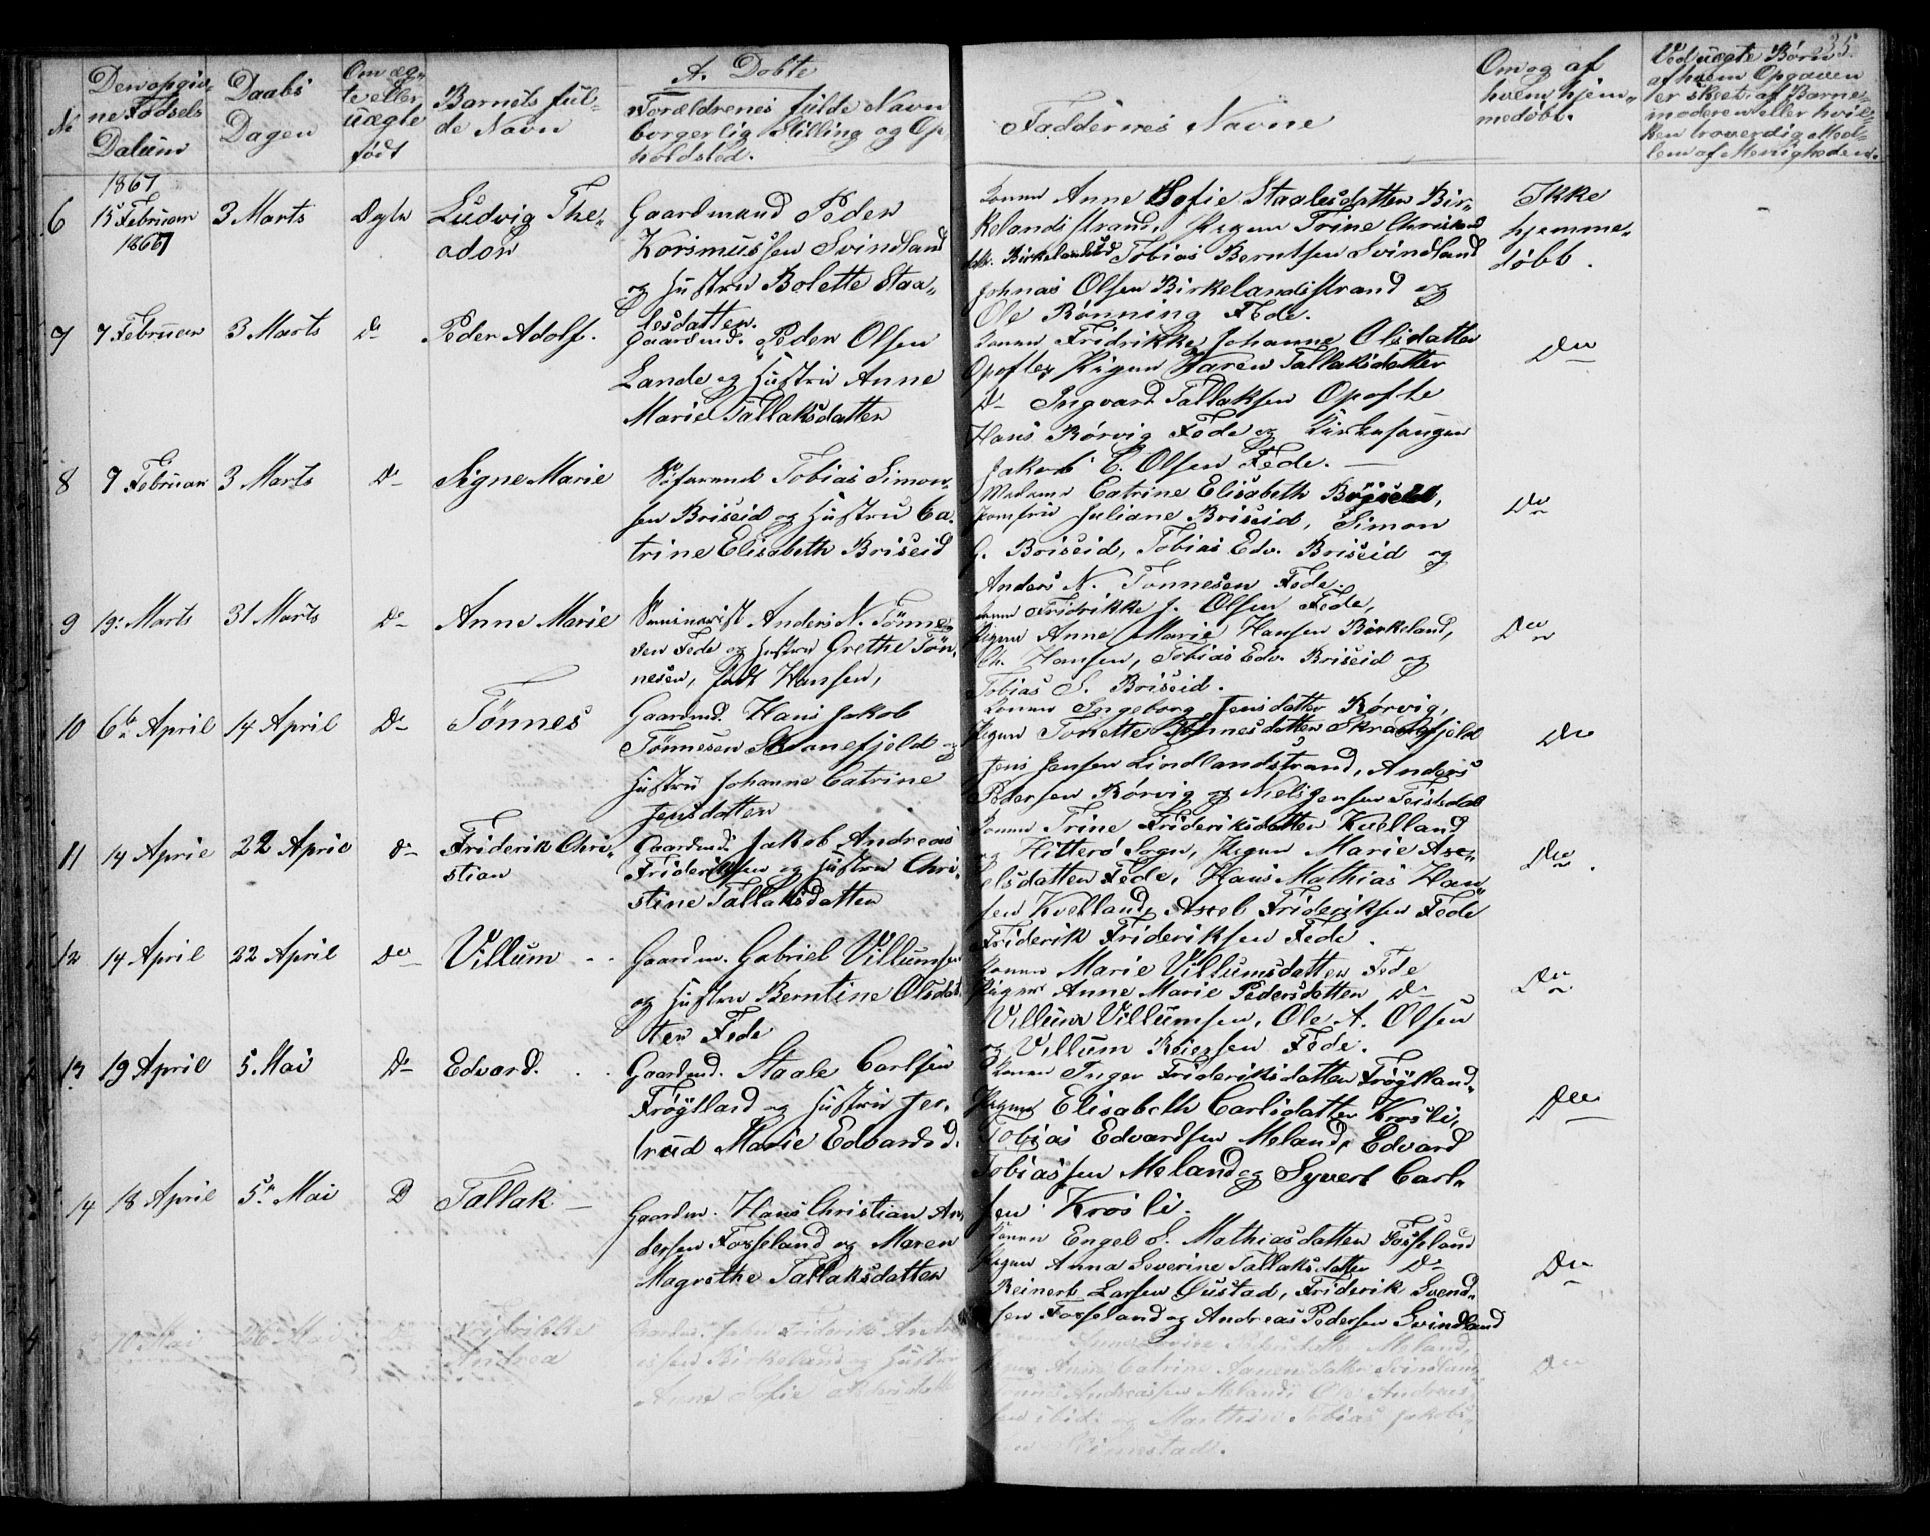 35.
A. Døbte
No
Den opgiv-
ne Fødsels
Datum
Daabs
Dagen
Om æg-
te eller
uægte
født
Barnets ful-
de Navn
Forældrenes fulde Navn
borgerlig Stilling og Op-
holdsted.
Faddernes Navne
Om og af
hvem hjem-
medøbt.
Ved uægte Børn
af hvem Opgaven
er skeet: af Barne-
moderen eller hvil-
ken troværdig Med-
lem af Menigheden.
1867
6 15 Februar 3 Marts Ægte Ludvig The-
1867
odor
Gaardmand Peder
Korsmussen Svindland
og Hustru Bolette Staa-
lesdatter.
Konen Anne Sofie Staalesdatter Bir-
kelandsstrand, Pigen Trine Christens
datr. Birkelands Tobias Berntsen Svindland
Johnas Olsen Birkelandsstrand og
Ole Rønning Fede.
Ikke
hjemme-
døbt.
7 7 Februar 3 Marts Do Peder Adolf.
Gaardmd. Peder Olsen
Lande og Hustru Anne
Marie Tallaksdatter
Konen Fridrikke Johanne Olsdatter
Opofte, Pigen Karen Tallaksdatter
Do Ingvard Tallaksen Opofte
Hans Rørvig Fede og Kirkesanger
Jakob C. Olsen Fede.
Do
8 7 Februar 3 Marts Do Signe Marie
Søfarende Tobias Simon-
sen Briseid og Hustru Ca-
trine Elisabeth Briseid
Madame Catrine Elisabeth
Jomfru Juliane Briseid, Simon
G. Briseid, Tobias Edv. Briseid og
Anders N. Tønnesen Fede.
Do
9 19. Marts 31 Marts Do Anne Marie
Seminarist Anders N. Tønne-
sen Fede og Hustru Grethe Tøn-
nesen, født Hansen,
Konen Fridrikke J. Olsen Fede,
Pigen Anne Marie Hansen Birkeland,
Ch. Hansen, Tobias Edv. Briseid og
Tobias S. Briseid.
Do
10 6te April 14 April Do Tønnes
Gaardmd. Hans Jakob
Tønnesen Skranefjeld og
Hustru Johanne Catrine
Jensdatter
Konen Ingeborg Jensdatter Rørvig,
Pigen Tonette Tønnesdatter Skranefjeld
Jens Jensen Lindlandstrand, Anders
Pedersen Rørvig og Niels Jensen Feistedal
Do
11 14 April 22 April Do Friderik Chri-
stian
Gaardmd. Jakob Andreas
Frideriksen og Hustru Chri-
stine Tallaksdatter
Konen Trine Frideriksdatter Kvelland
og Hitterø Sogn, Pigen Marie Axe-
elsdatter Fede, Hans Mathias Han-
sen Kvelland, Axel Frideriksen Fede
Friderik Frideriksen Fede.
Do
12 14 April 22 April Do Villum
Gaardm. Gabriel Villumsen
og Hustru Berntine Olsdat-
ter Fede
Konen Marie Villumsdatter Fede
Pigen Anne Marie Pedersdatter Do
Villum Villumsen, Ole A. Olsen
og Villum Reiersen Fede.
Do
13 19 April 5. Mai Do Edvard.
Gaardmd. Staale Carlsen
Frøytland og Hustru Jer-
trud Marie Edvardsd.
Konen Inger Frideriksdatter Frøytland,
Pigen Elisabeth Carlsdatter Krosli,
Tobias Edvardsen Meland, Edvard
Tobiassen Meland og Syvert Carl-
sen Krosli.
Do
14 18 April 5te Mai D Tallak
Gaardm. Hans Christian An-
dersen Fosseland og Maren
Magrethe Tallaksdatter
Konen Engel S. Mathiasdatter Fosseland
Pigen Anna Severine Tallaksdatter Do
Reinert Larsen Øustad, Friderik Svend-
sen Fosseland og Andreas Pedersen Svindland
Do
10 Mai 26 Mai Fridrikke
Andrea
Friderik Andre-
assen Birkeland og Hustru
Anne Sofie
Meland,
Pigen Anne Catrine Aanensdatter Svindland
Tønnes Andreassen Meland, Ole Andreas-
sen ibid. og Mathias Tobias Jakobs-
Do